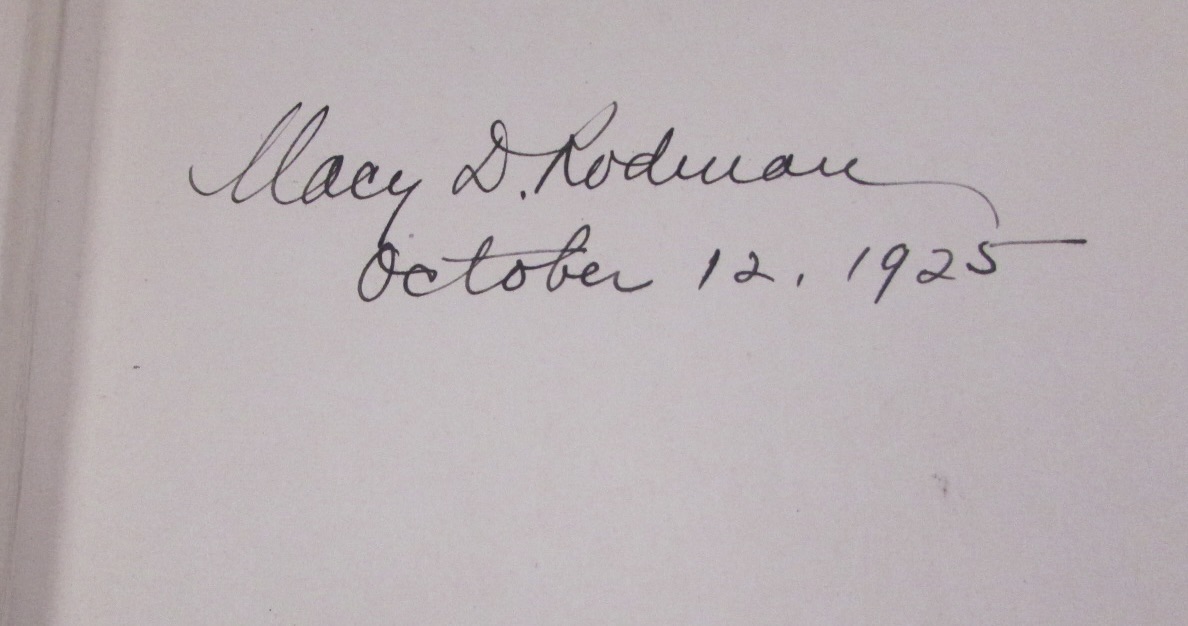 Macy D. Rodman
October 12, 1925